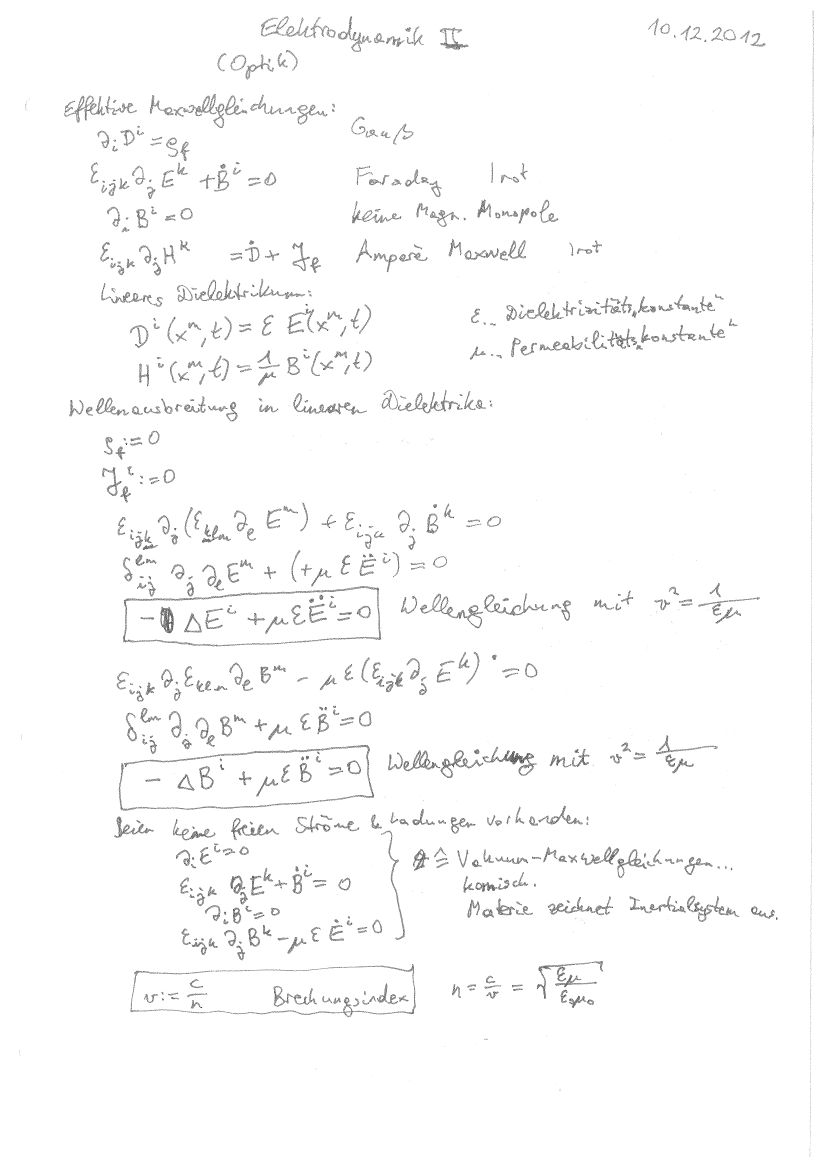 Elektrodynamik II 10.12.2012
(Optik)
Effektive Maxwellgleichungen:
∂ᵢDⁱ = ρ_f Gauß
ε_ijk ∂_j E^k + Ḃ^i = 0 Faraday | rot
∂ᵢBⁱ = 0 keine Magn. Monopole
ε_ijk ∂_j H^k = Ḋ + J_f Amperè Maxwell | rot
Lineares Dielektrikum:
D^i(x^m,t) = ε E^i(x^m,t) ε... Dielektrizitäts„konstante“
H^i(x^m,t) = 1/μ B^i(x^m,t) μ... Permeabilitäts„konstante“
Wellenausbreitung in linearen Dielektrika:
ρ_f := 0
J_f^i := 0
ε_ijk ∂_j (ε_klm ∂_l E^m) + ε_ijk ∂_j Ḃ^k = 0
δ_ij^lm ∂_j ∂_l E^m + (+μ ε Ë^i) = 0
- ΔE^i + μ ε Ë^i = 0 Wellengleichung mit v² = 1/εμ
ε_ijk ∂_j ε_klm ∂_l B^m - μ ε (ε_ijk ∂_j E^k)˙ = 0
δ_ij^lm ∂_j ∂_l B^m + μ ε B̈^i = 0
- ΔB^i + μ ε B̈^i = 0 Wellengleichung mit v² = 1/εμ
Seien keine freien Ströme & Ladungen vorhanden:
∂ᵢEⁱ = 0
ε_ijk ∂_j E^k + Ḃ^i = 0 ≙ Vakuum-Maxwellgleichungen...
∂ᵢBⁱ = 0 komisch.
ε_ijk ∂_j B^k - μ ε Ė^i = 0 Materie zeichnet Inertialsystem aus.
v := c/n Brechungsindex n = c/v = √(εμ/ε₀μ₀)